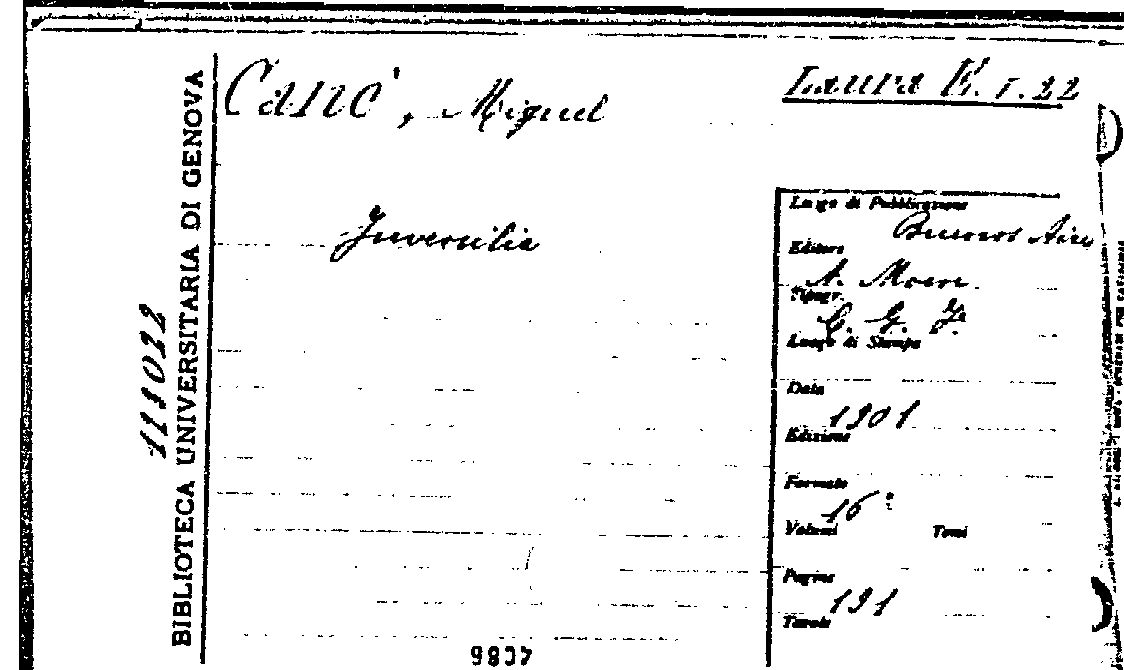 Canè, Miguel
Laura E. 1. 22
Juvenilia
BIBLIOTECA UNIVERSITARIA DI GENOVA
111022
Luogo di Pubblicazione
Buenos Aires
Editore
A. Moen
Tipogr.
Luogo di Stampa
Data
1901
Edizione
Formato
16º
Volumi Tomi
Pagine
191
Tavole
4086